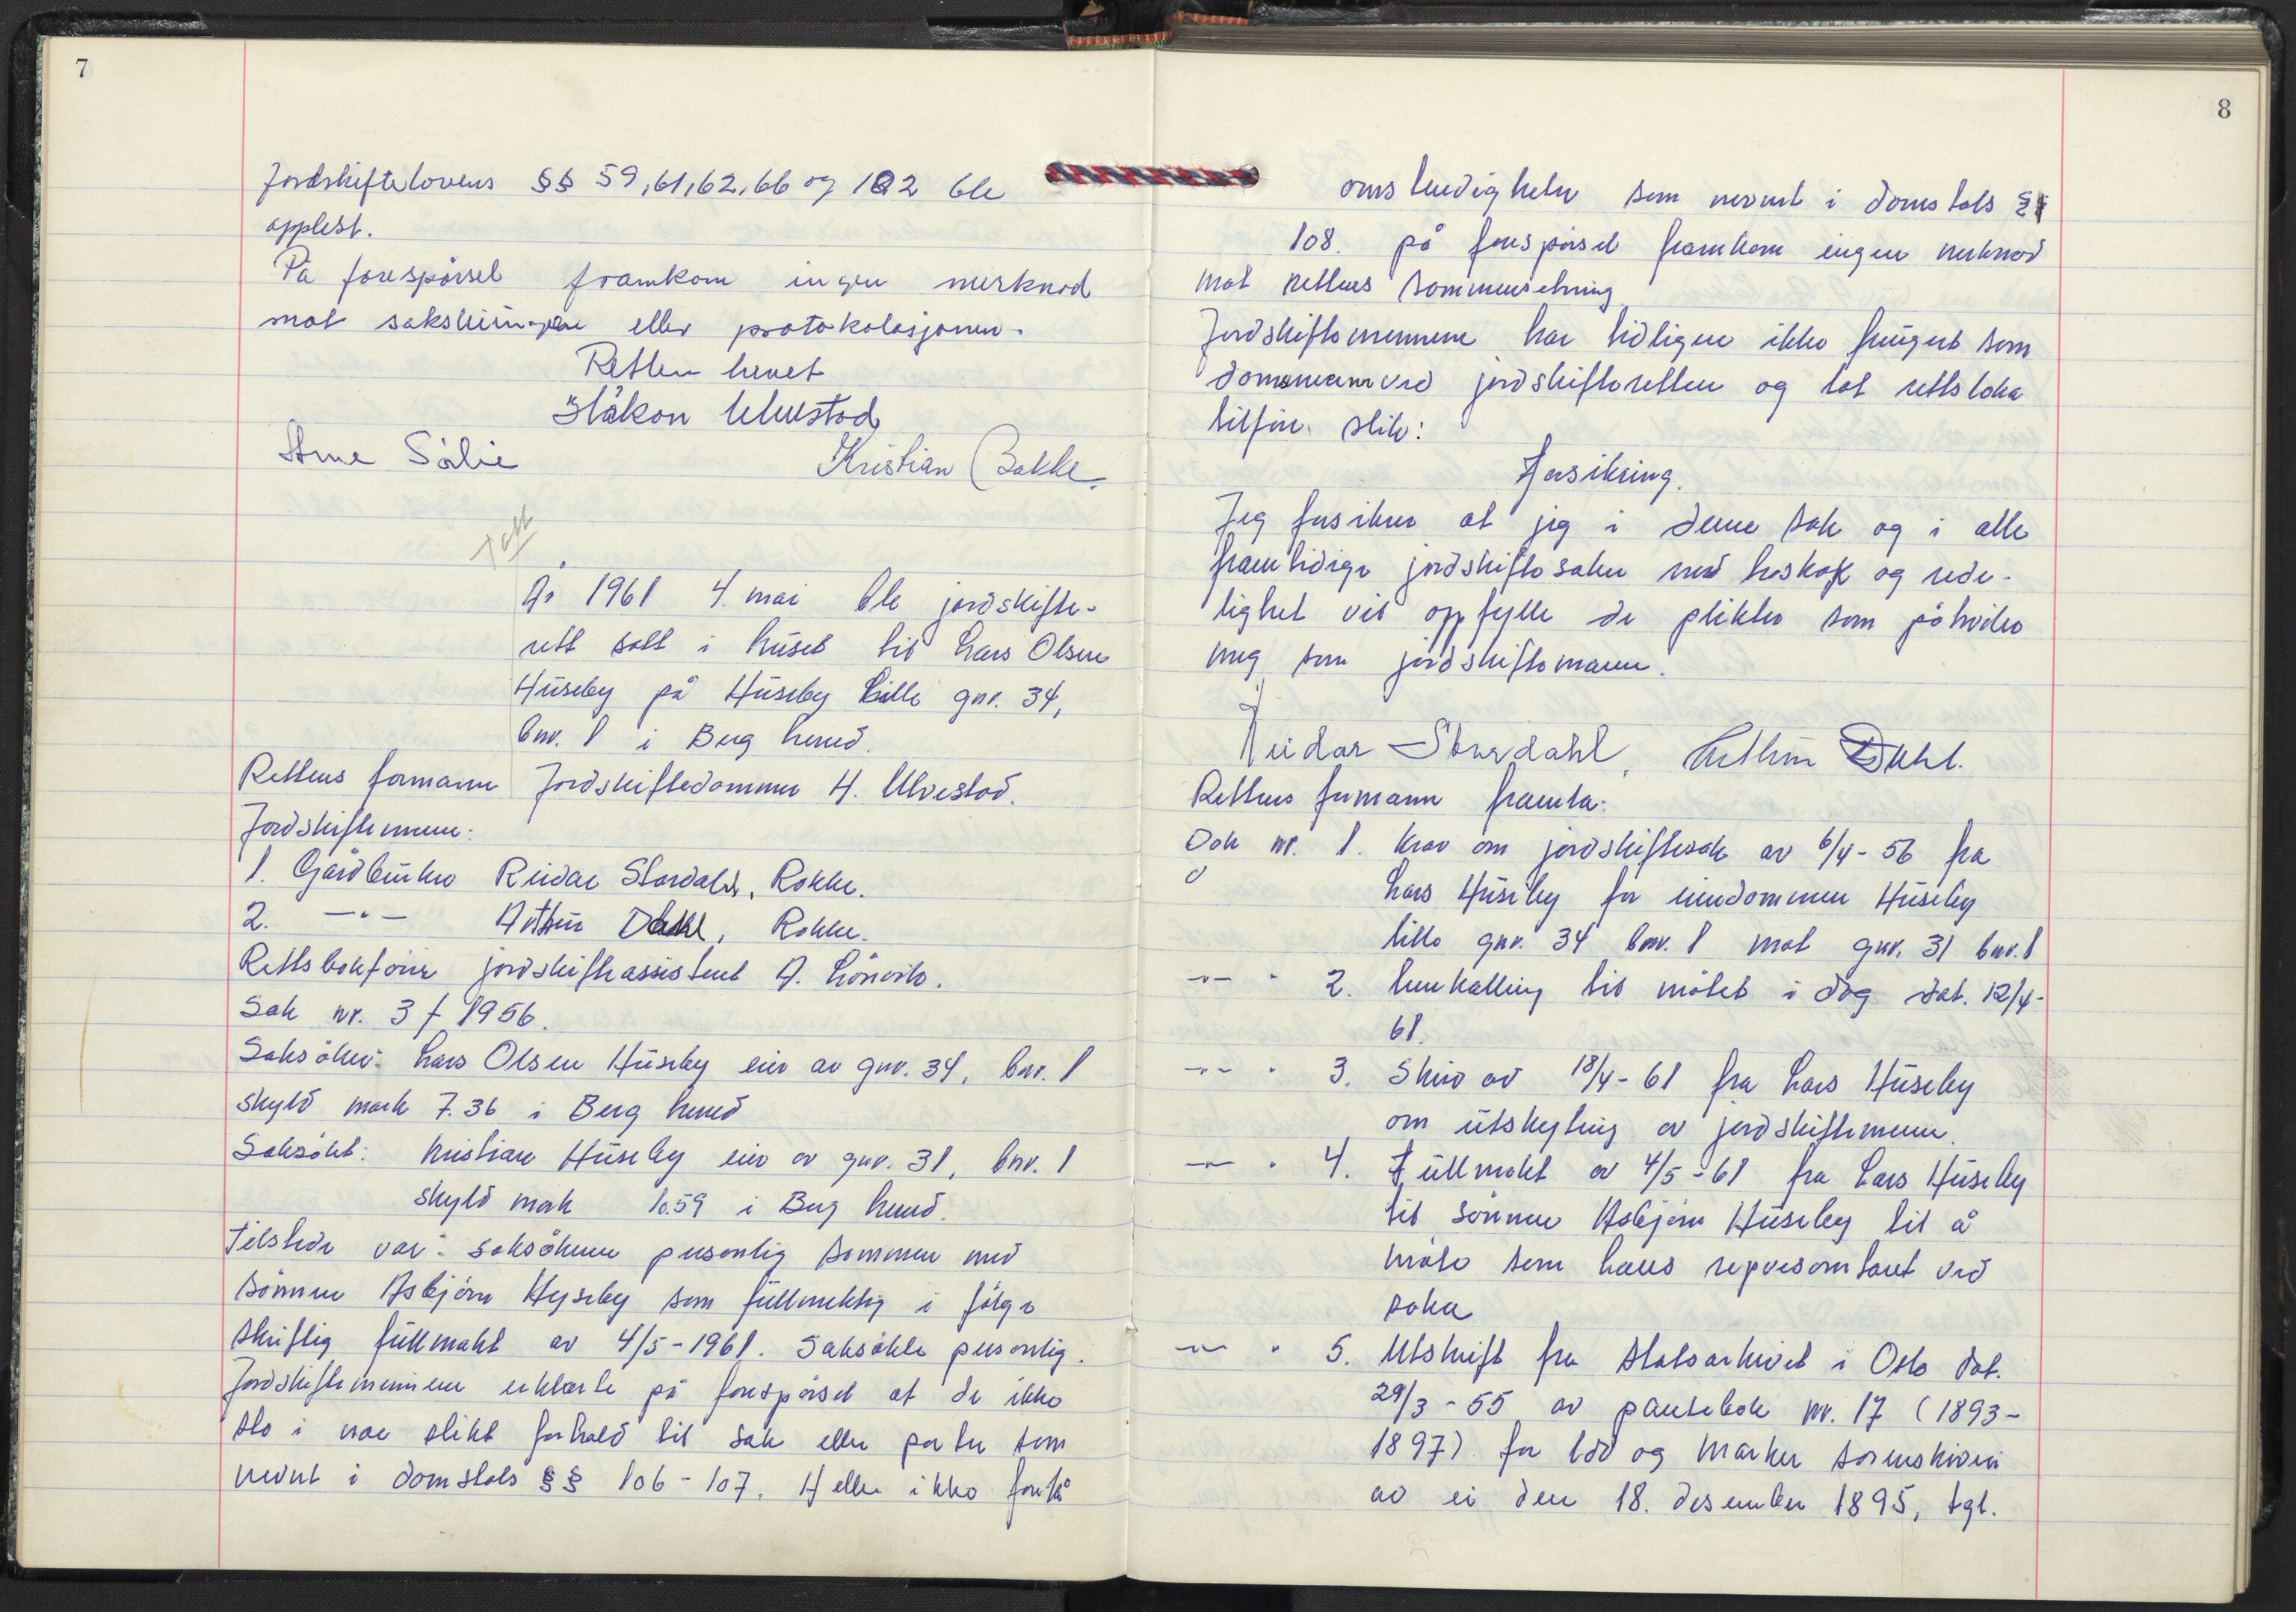 7
Jordskiftelovens §§ 59, 61, 62, 66 og 122 ble
opplest.
På forespørsel framkom ingen merknad
mot saksstyringen eller protokolasjonen.
Retten hevet
Håkon Ulvestad
Arne Sørlie Kristian Bakke.
År 1961 4. mai ble jordskifte-
rett satt i huset til Lars Olsen
Huseby på Huseby Lille gnr. 34,
bnr. 1 i Berg herred.
Rettens formann Jordskiftedommer H. Ulvestad.
Jordskiftemenn:
1. Gårdbruker Reidar Stordahl, Rokke.
2. —"— Arthur Dahl, Rokke.
Rettsbokfører jordskifteassistent A. Lönvik.
Sak nr. 3 / 1956.
Saksøker: Lars Olsen Huseby eier av gnr. 34, bnr. 1
skyld mark 7.36 i Berg herred
Saksøkt: Kristian Huseby eier av gnr. 31, bnr. 1
skyld mark 10.59 i Berg herred.
Tilstede var: saksøkeren personlig sammen med
sønnen Asbjørn Hyseby som fullmektig i følge
skriftlig fullmakt av 4/5-1961. Saksøkte personlig.
Jordskiftemennene erklærte på forespørsel at de ikke
sto i noe slikt forhold til sak eller parter som
nevnt i domstols §§ 106-107. Heller ikke forelå
8
omstendigheter som nevnt i domstols §
108. på forespørsel framkom ingen merknad
mot rettens sammensetning
Jordskiftemennene har tidligere ikke fungert som
domsmenn ved jordskifteretten og lot rettsboka
tilføre slik:
Forsikring.
Jeg forsikrer at jeg i denne sak og i alle
framtidige jordskiftesaker med troskap og rede-
lighet vil oppfylle de plikter som påhviler
meg som jordskiftemann.
Reidar Stordahl, Arthur Dahl.
Rettens formann framla:
Dok nr. 1. Krav om jordskiftesak av 6/4-56 fra
Lars Huseby for eiendommen Huseby
lille gnr. 34 bnr. 1 mot gnr. 31 bnr. 1
—"— " 2. Innkalling til møtet i dag dat. 12/4-
61.
—"— " 3. Skriv av 18/4-61 fra Lars Huseby
om utskyting av jordskiftemenn.
—"— " 4. Fullmakt av 4/5-61 fra Lars Huseby
til sønnen Asbjørn Huseby til å
møte som hans representant ved
saka
—"— " 5. Utskrift fra statsarkivet i Oslo dat.
29/3-55 av pantebok nr. 17 (1893-
1897) for Idd og Marker sorenskriveri
av ei den 18. desember 1895, tgl.